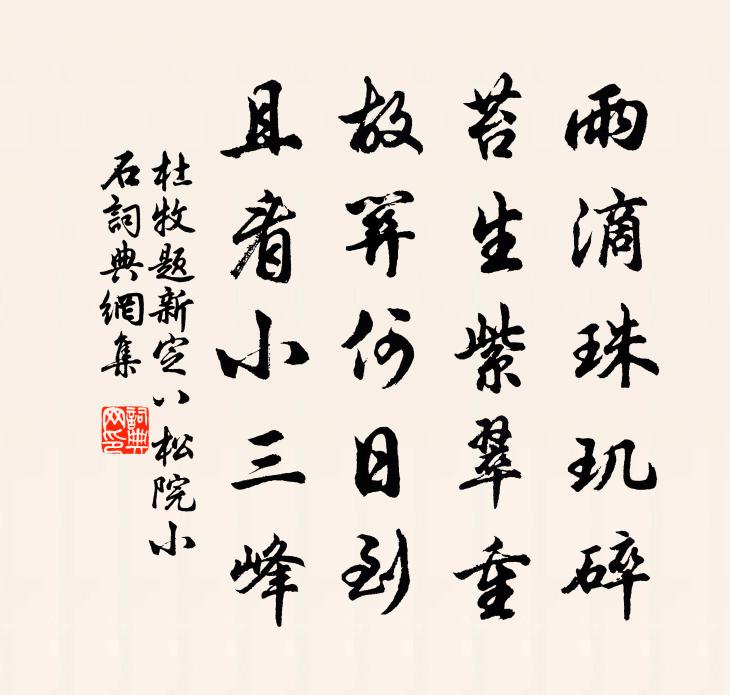 雨滴珠玑碎
苔生紫翠重
故關何日到
且看小三峰
杜牧題新定八松院小
石詞典網集
詞典
网印